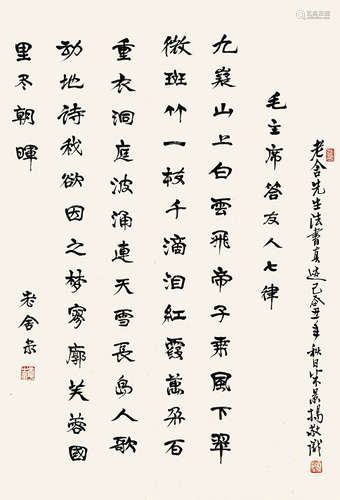 老舍先生法書真迹
秋日
敬識
毛主席答友人七律
九嶷山上白雲飛帝子乘風下翠
微斑竹一枝千滴泪紅霞萬朵百
重衣洞庭波涌連天雪長島人歌
動地詩我欲因之梦寥廓芙蓉國
里尽朝暉
老舍录